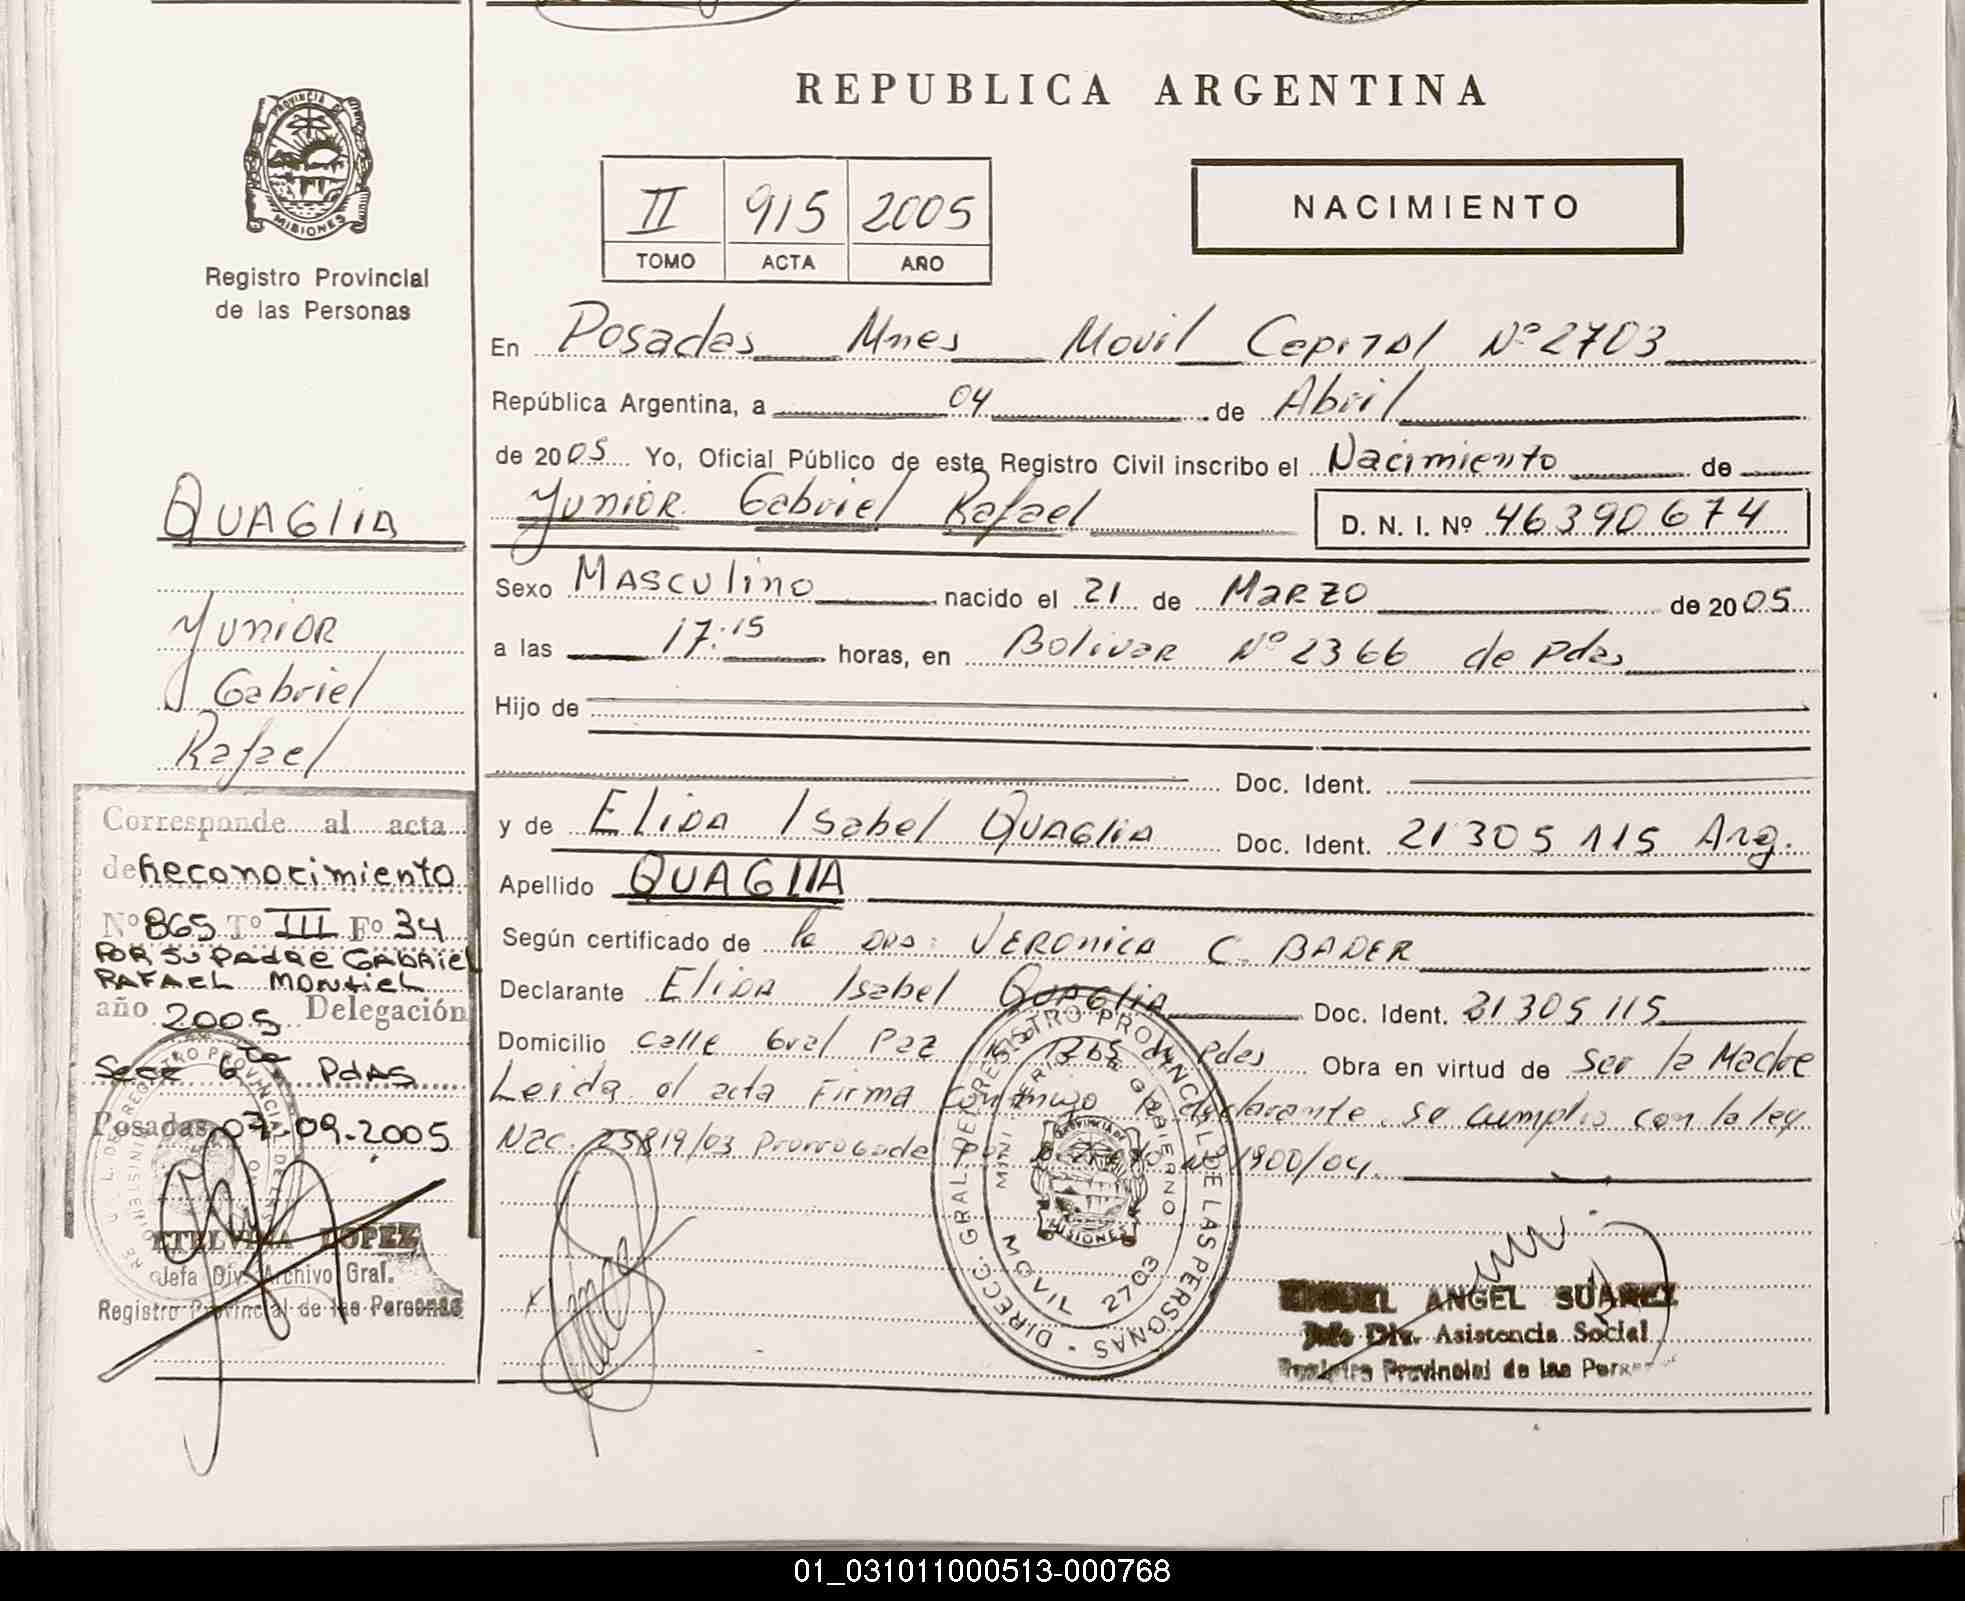 REPUBLICA ARGENTINA
PROVINCIA DE
MISIONES
Registro Provincial
de las Personas
II 915 2005
TOMO ACTA AÑO
NACIMIENTO
En Posadas Mnes Movil Capital Nº 2703
República Argentina, a 04 de Abril
de 2005 Yo, Oficial Público de este Registro Civil inscribo el Nacimiento de
Yunior Gabriel Rafael D. N. I. Nº 46.390.674
Sexo Masculino nacido el 21 de Marzo de 2005
a las 17:15 horas, en Bolivar Nº 2366 de Pdas
Hijo de
Doc. Ident.
y de Elida Isabel Quaglia Doc. Ident. 21 305 115 Arg.
Apellido QUAGLIA
Según certificado de la Dra: Veronica C. BADER
Declarante Elida Isabel Quaglia Doc. Ident. 21305115
Domicilio Calle Gral Paz 1265 de Pdas Obra en virtud de Ser la Madre
Leida el acta Firma Conmigo la declarante. se cumplio con la ley
Nac. 25819/03 Prorrogada por Decreto Nº 1900/04.
QUAGLIA
Yunior
Gabriel
Rafael
Corresponde al acta
de Reconocimiento
Nº 865 Tº III Fº 34
POR SU PADRE GABRIEL
RAFAEL MONTIEL
año 2005 Delegación
Secc 6ta Pdas
Posadas, 07-09-2005
ETELVINA LOPEZ
Jefa Div. Archivo Gral.
Registro Provincial de las Personas
DIRECC. GRAL. DE REGISTRO PROVINCIAL DE LAS PERSONAS
MINISTERIO DE GOBIERNO
PROVINCIA DE
MISIONES
MOVIL 2703
MIGUEL ANGEL SUAREZ
Jefe Div. Asistencia Social
Registro Provincial de las Personas
01_031011000513-000768